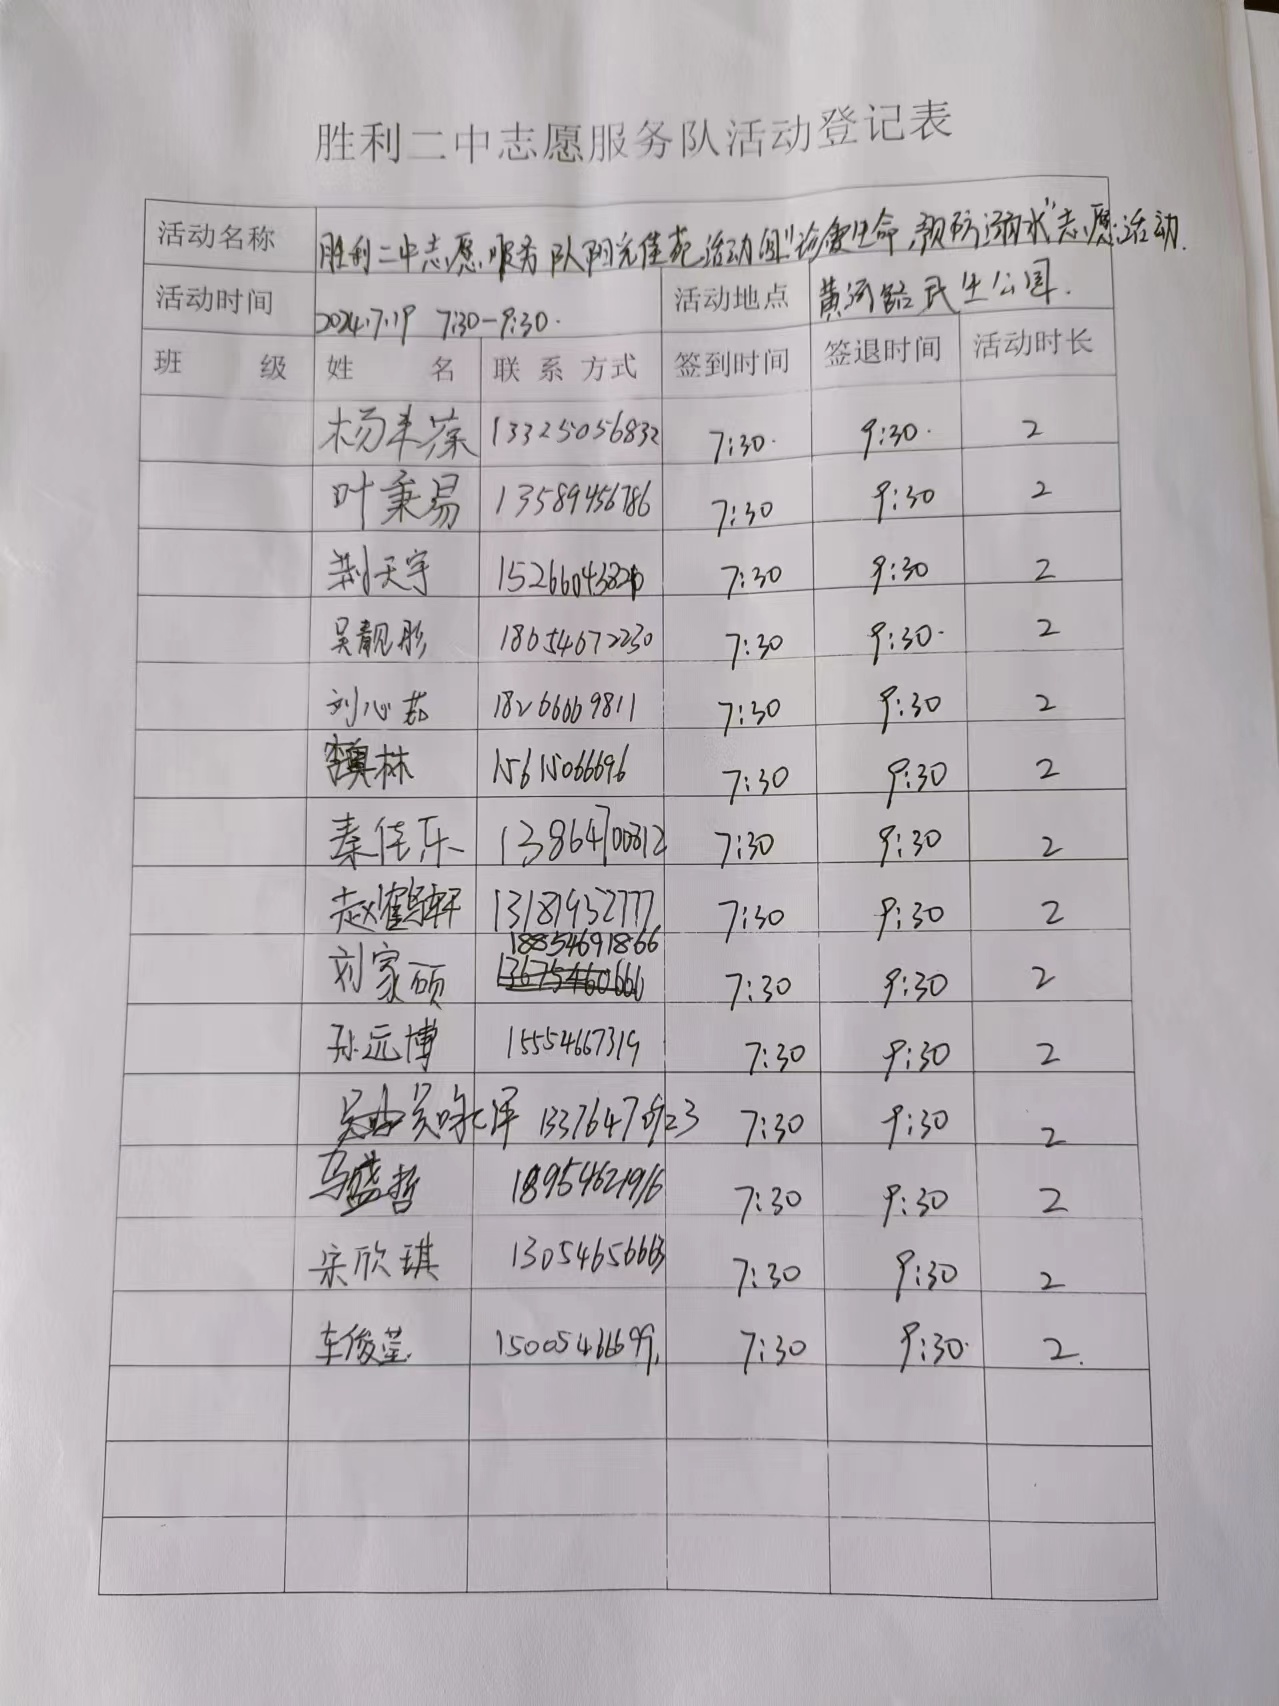 胜利二中志愿服务队活动登记表
活动名称 胜利二中志愿服务队阳光佳苑活动组"珍爱生命,预防溺水"志愿活动.
活动时间 2024.7.19 7:30-9:30. 活动地点 黄河路民生公园.
班 级 姓 名 联系方式 签到时间 签退时间 活动时长
杨丰蔡 13325056832 7:30. 9:30. 2
叶秉易 13589456786 7:30 9:30 2
荆天宇 7:30 9:30 2
吴靓彤 18654672230 7:30 9:30. 2
刘心茹 18266669811 7:30 9:30 2
林 15615066696 7:30 9:30 2
秦佳乐 13864700812 7:30 9:30 2
赵鹤轩 13181952777 7:30 9:30 2
18854691866
刘家硕 13675460666 7:30 9:30 2
孙远博 15554667319 7:30 9:30 2
吴咏泽 7:30 9:30 2
马盛哲 18954621916 7:30 9:30 2
宋欣琪 13054656663 7:30 9:30 2
车俊莹 15005466699. 7:30 9:30. 2.